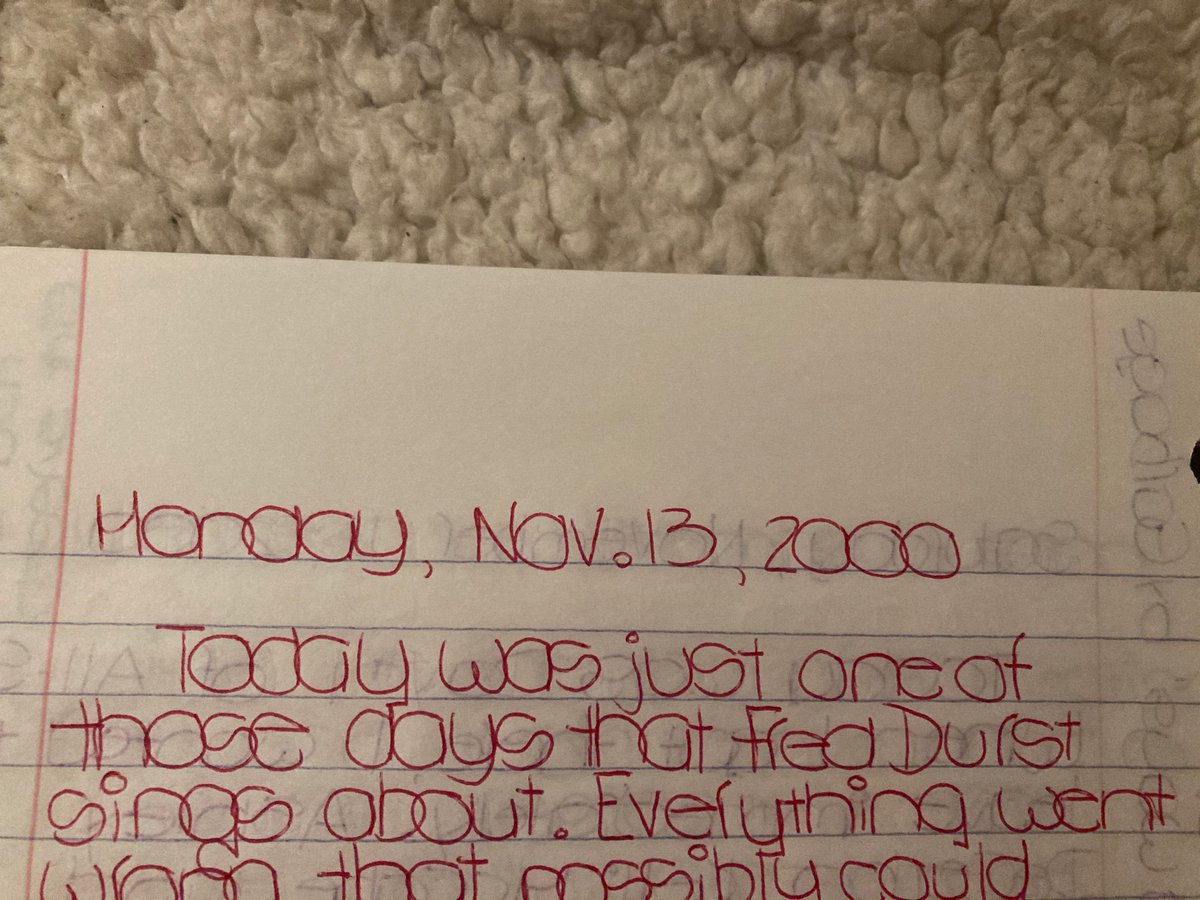 Monday, Nov. 13, 2000
Today was just one of
those days that Fred Durst
sings about. Everything went
wrong that possibly could